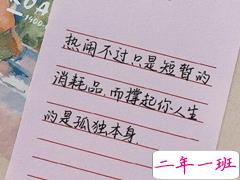 热闹不过只是短暂的
消耗品，而撑起你人生
的是孤独本身
二年一班